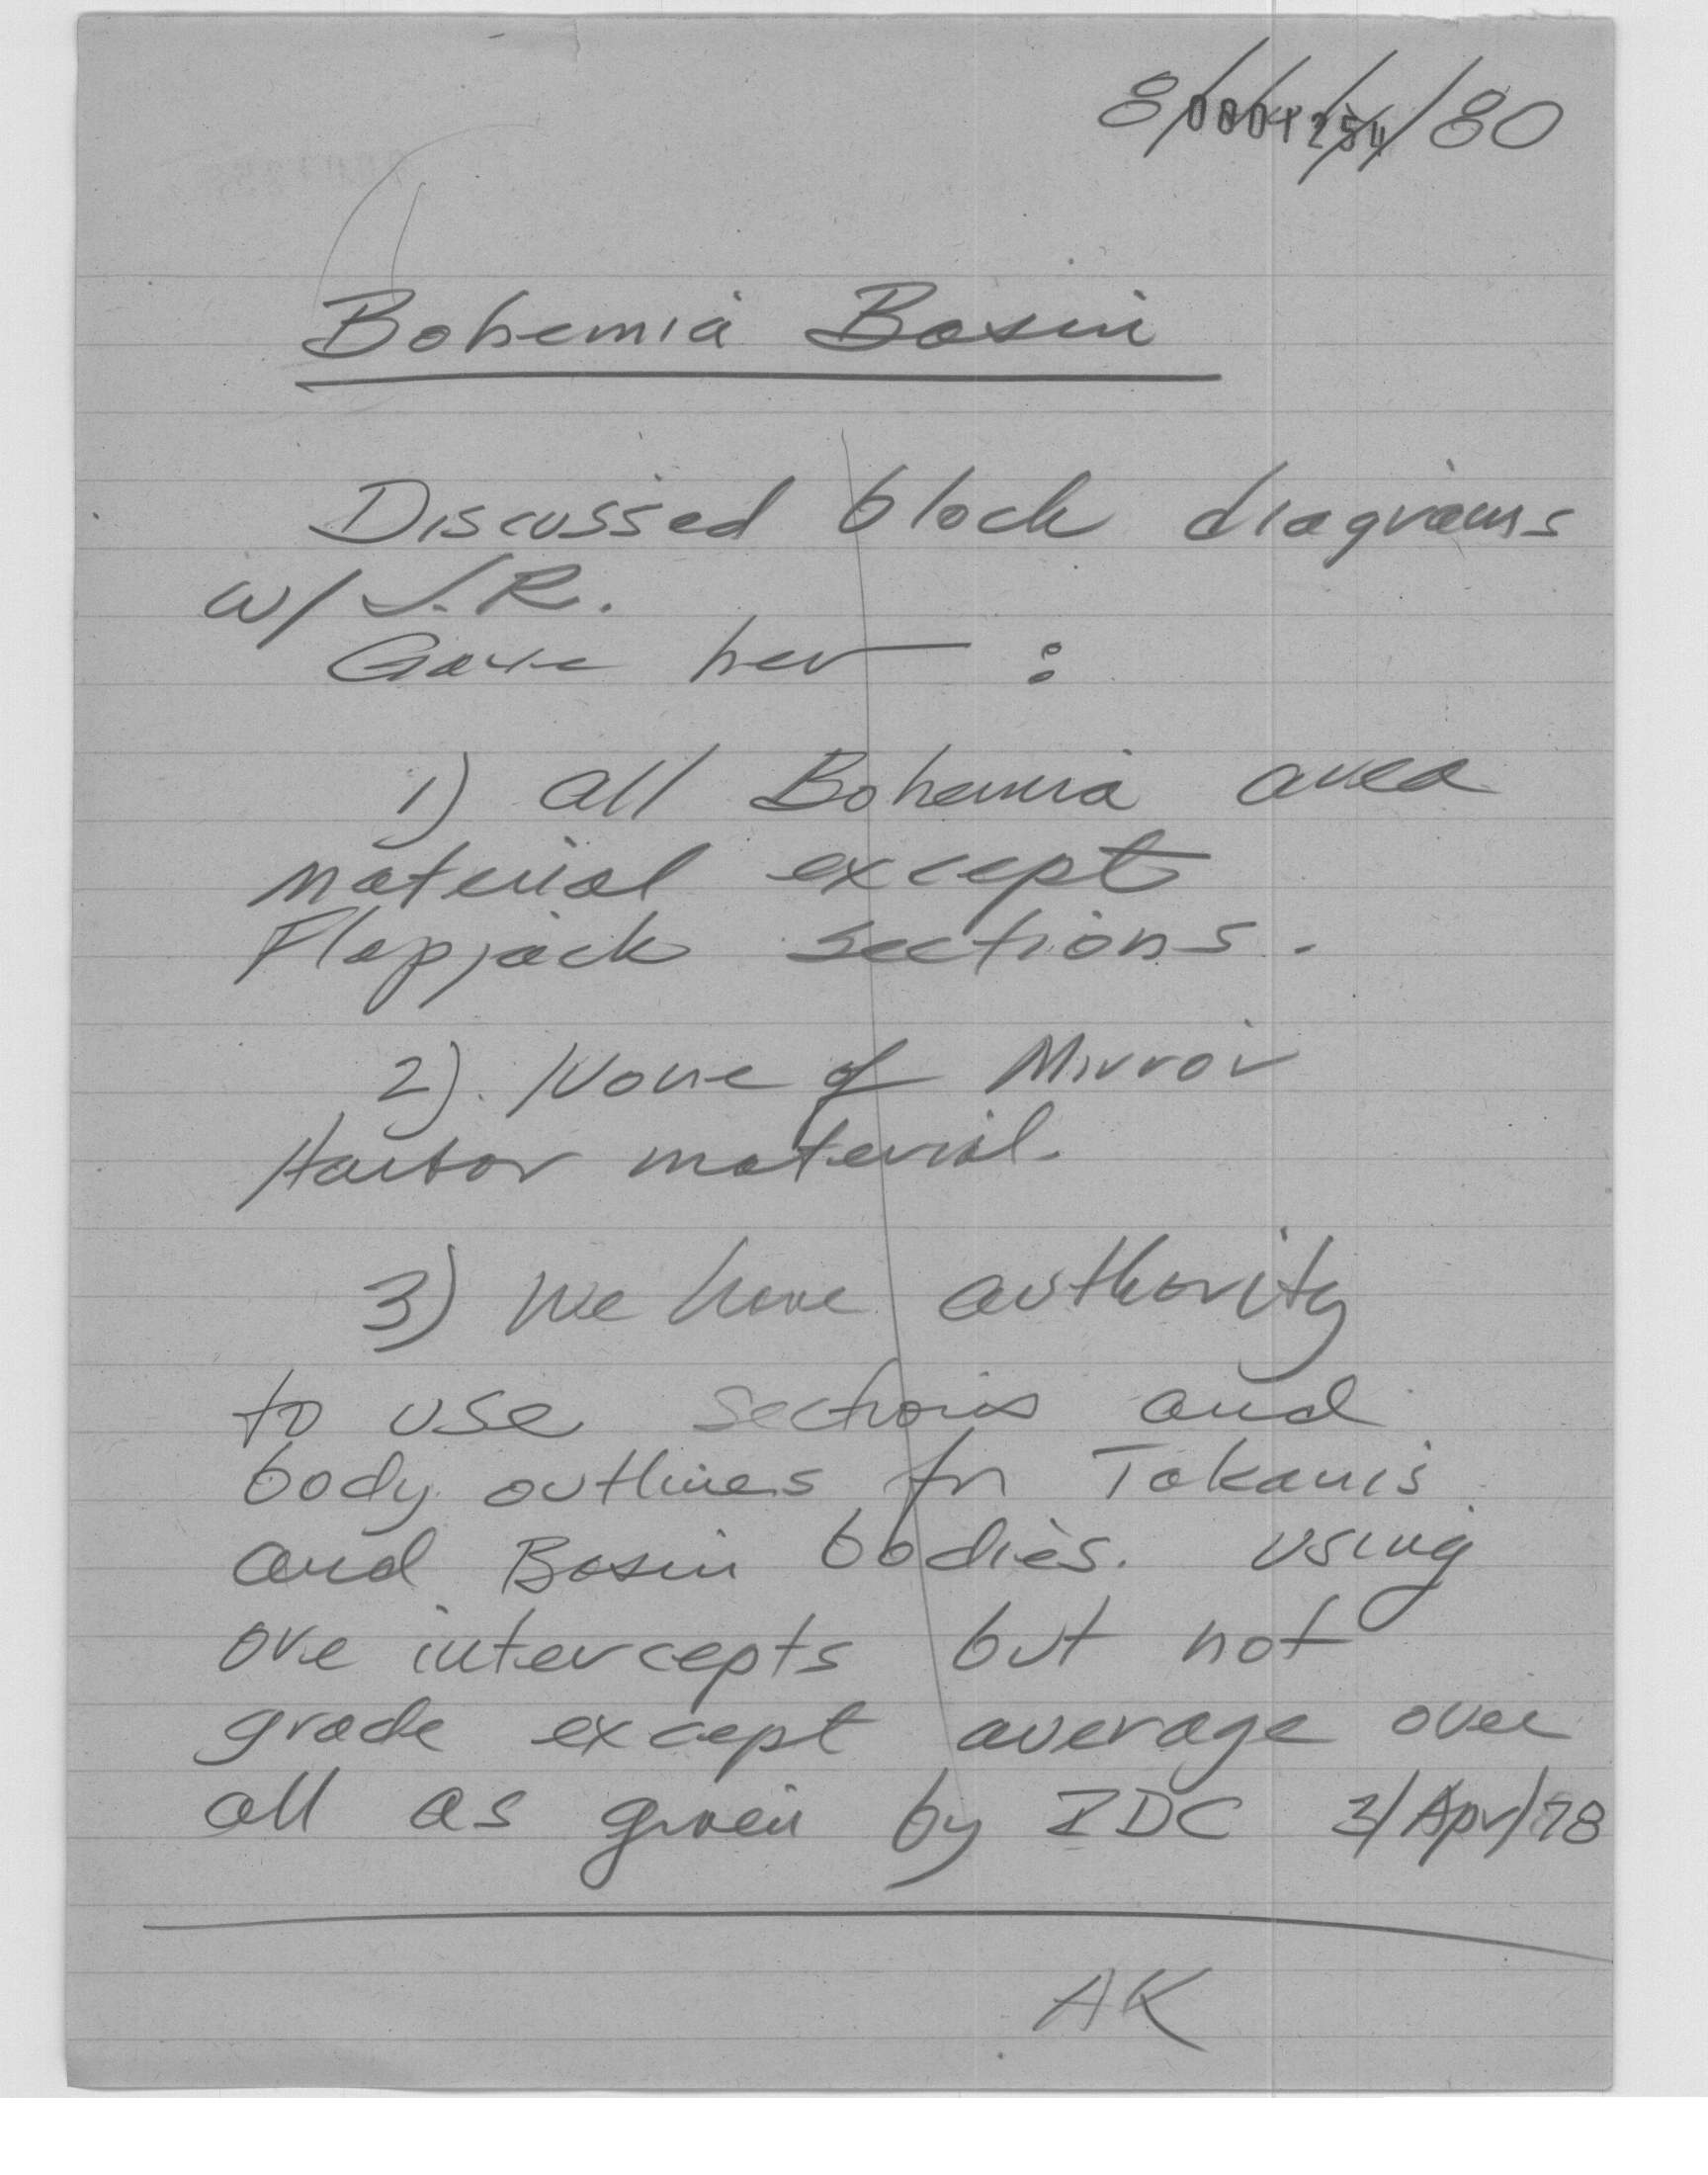 8/ /80
0001254
Bohemia Basin
Discussed block diagrams
w/ J.R.
Gave her :
1) all Bohemia area
material except
Flapjack sections.
2). None of Mirror
Harbor material.
3) We have authority
to use sections and
body outlines for Takanis
and Basin bodies. using
ore intercepts but not
grade except average over
all as given by IDC 3/Apr/78
AK